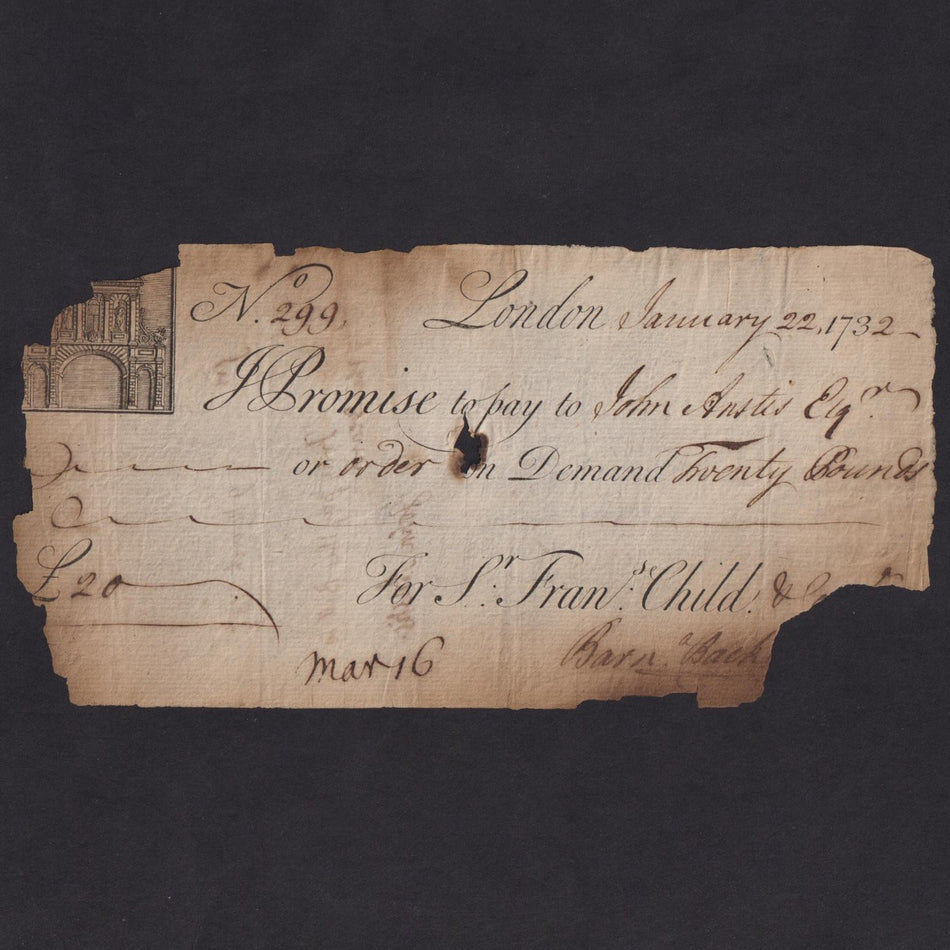 Nº. 299. London January 22, 1732
I Promise to pay to John Anstis Esqr.
or order on Demand Twenty Pounds
£ 20 For Sr. Franˢ. Child &
Mar 16 Barnᵃ. Back